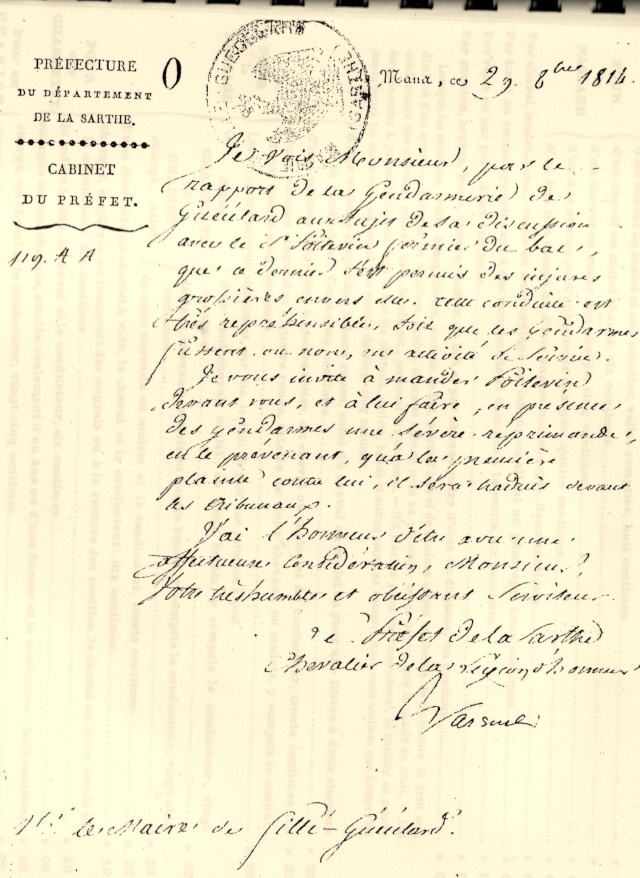 PRÉFECTURE
DU DÉPARTEMENT
DE LA SARTHE.
CABINET
DU PRÉFET.
119. A A
Mans, ce 29. 8bre 1814.
Je vois, Monsieur, par le
rapport de la Gendarmerie de
Guéulard au sujet de sa discussion
avec le Sr Poitevin fermier du bac,
que ce dernier s'est permis des injures
grossières envers elle. cette conduite est
très répréhensible, soit que les gendarmes
fussent, ou non, en activité de service.
Je vous invite à mander Poitevin
devant vous, et à lui faire, en présence
des gendarmes une sévère réprimande,
en le prévenant, qu'à la première
plainte contre lui, il sera traduit devant
les tribunaux.
J'ai l'honneur d'être avec une
affectueuse Considération, Monsieur,
Votre très humble et obéissant Serviteur
Le Préfet de la Sarthe
Chevalier de la Légion d'honneur
Mr. le Maire de Fillé-Guéulard.